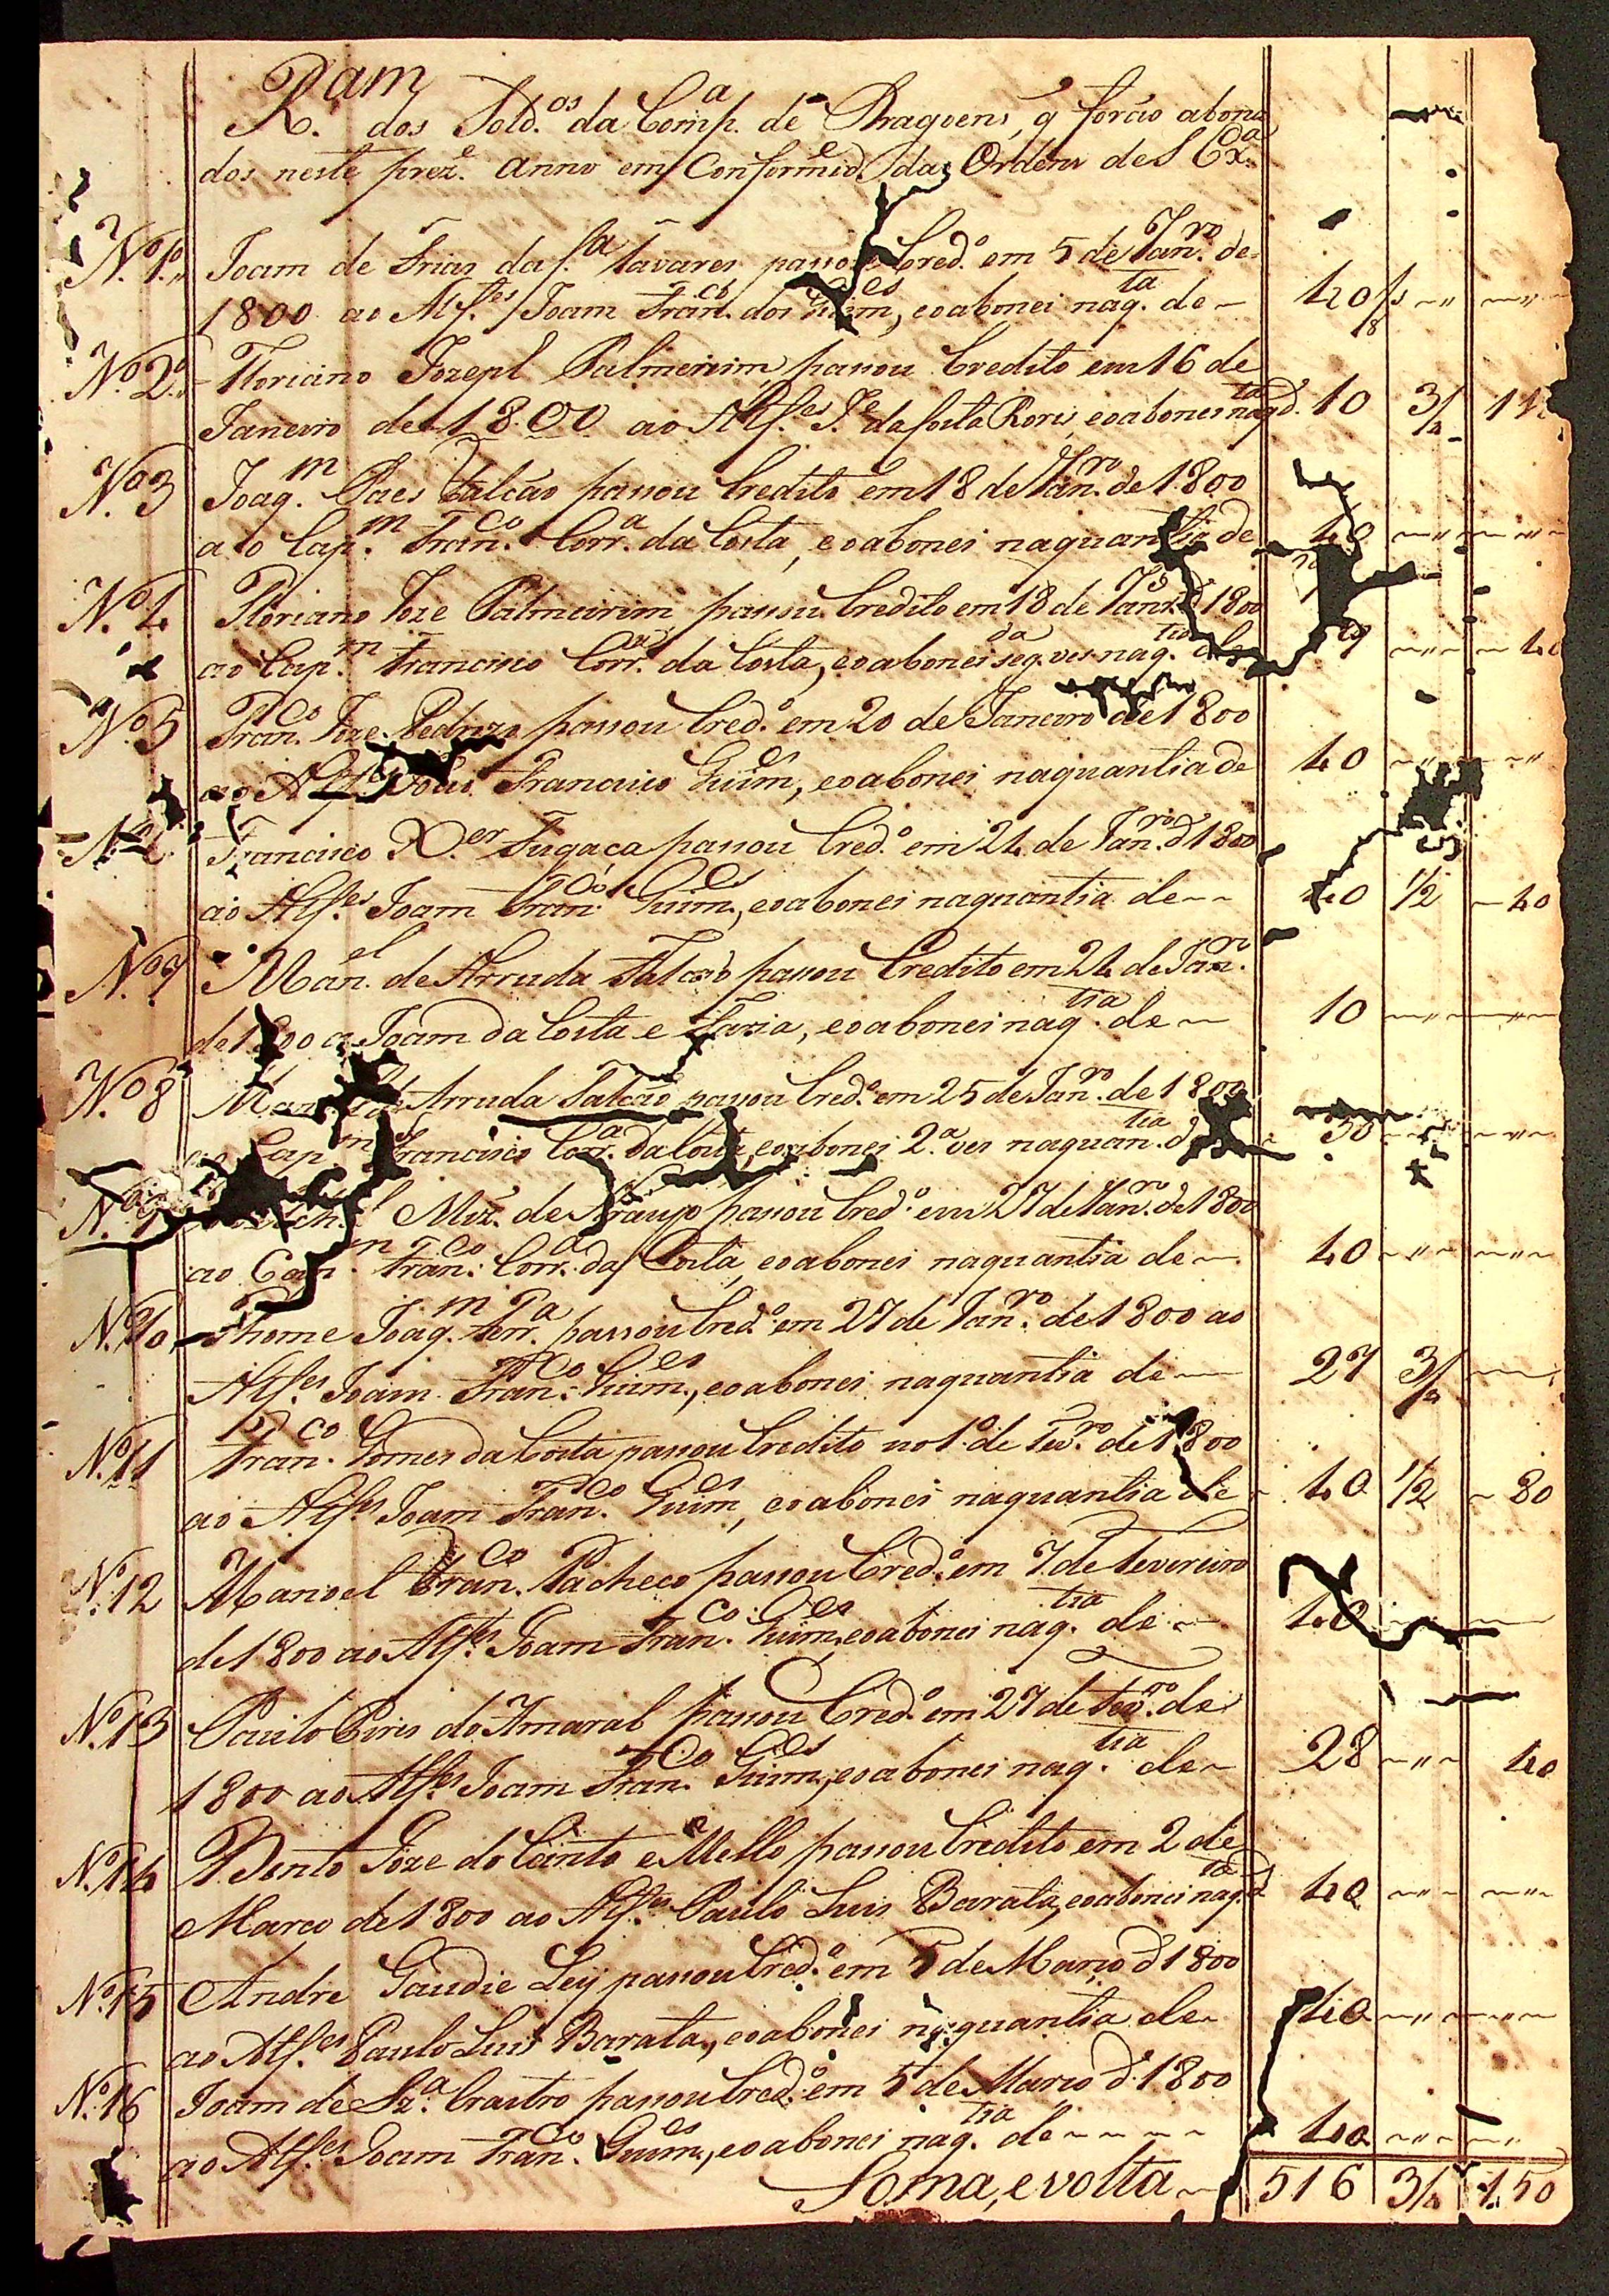 R.am dos Sold.os da Comp.a de Dragoens, q̃ forão abona
dos neste prez.e anno em Conformid.e das Ordens de S Ex.a
N.o 1.o Joam de Frias da S.a Tavares passou Cred.o em 5 de Jan.ro de
1800 ao Alf.es Joam Fran.co dos Guim.es, eoabonei naq.ta de ~ 40/8
N.o 2.o Floriano Jozepl Palmeirim, passou Credito em 16 de
Janeiro de 1800 ao Alf.es J.e da Costa Roris, eoabonei naq.tia d. 10 3/4
N.o 3 Joaq.m Paes Falcão passou Credito em 18 de Jan.ro de 1800
ao Cap.m Fran.co Corr.a da Costa, eoabonei naquantia de 40
N.o 4 Floriano Joze Palmeirim, passou Credito em 18 de Jan.ro d 1800
ao Cap.m Francisco Corr.a da Costa, eoabonei seg.da ves naq.tia de
N.o 5 Fran.co Joze Pedrozo passou Cred.o em 20 de Janeiro de 1800
ao Alf.es Francisco Guim.es, eoabonei naquantia de 40
N.o Francisco X.er Fugaça passou Cred.o em 24 de Jan.ro d 1800
ao Alf.es Joam Fran.co Guim.es, eoabonei naquantia de ~ ~ 40 1/2 ~ 40
N.o 7 Man.el de Arruda Falcão passou Credito em 24 de Jan.ro
de 1800 a Joam da Costa e Faria, eoabonei naq.tia de ~ 10
N.o 8 Man.el de Arruda Falcão passou Cred.o em 25 de Jan.ro de 1800
ao Cap.m Francisco Corr.a da Costa, eoabonei 2.a ves naquan.tia d 30
N.o 9 Miz. de Araujo passou Cred.o em 27 de Jan.ro de 1800
ao Cap.m Fran.co Corr.a da Costa, eoabonei naquantia de ~ 40
N.o 10 Thome Joaq.m Ferr.a passou Cred.o em 27 de Jan.ro de 1800 ao
Alf.es Joam Fran.co Guim.es, eoabonei naquantia de ~ 27 3/4
N.o 11 Fran.co Gomes da Costa passou Credito no 1.o de Fev.ro de 1800
ao Alf.es Joam Fran.co Guim.es, eoabonei naquantia de 40 1/2 ~ 80
N.o 12 Manoel Fran.co Pacheco passou Cred.o em 7 de Fevereiro
de 1800 ao Alf.es Joam Fran.co Guim.es, eoabonei naq.tia de ~ 40
N.o 13 Paulo Pires do Amaral passou Cred.o em 27 de Fev.ro de
1800 ao Alf.es Joam Fran.co Guim.es, eoabonei naq.tia de ~ 28 ~ 40
N.o 14 Bento Joze do Canto e Mello passou Credito em 2 de
Março de 1800 ao Alf.es Paulo Luis Barata, eoabonei naq.tia d 40
N.o 15 Andre Gaudie Leÿ passou Cred.o em 5 de Março d 1800
ao Alf.es Paulo Luis Barata, eoabonei naquantia de ~ 40
N.o 16 Joam de Sz.a Crastro passou Cred.o em 5 de Março d 1800
ao Alf.es Joam Fran.co Guim.es, eoabonei naq.tia de ~ ~ ~ ~ 40
Soma, e volta ~ 516 3/4 1.50